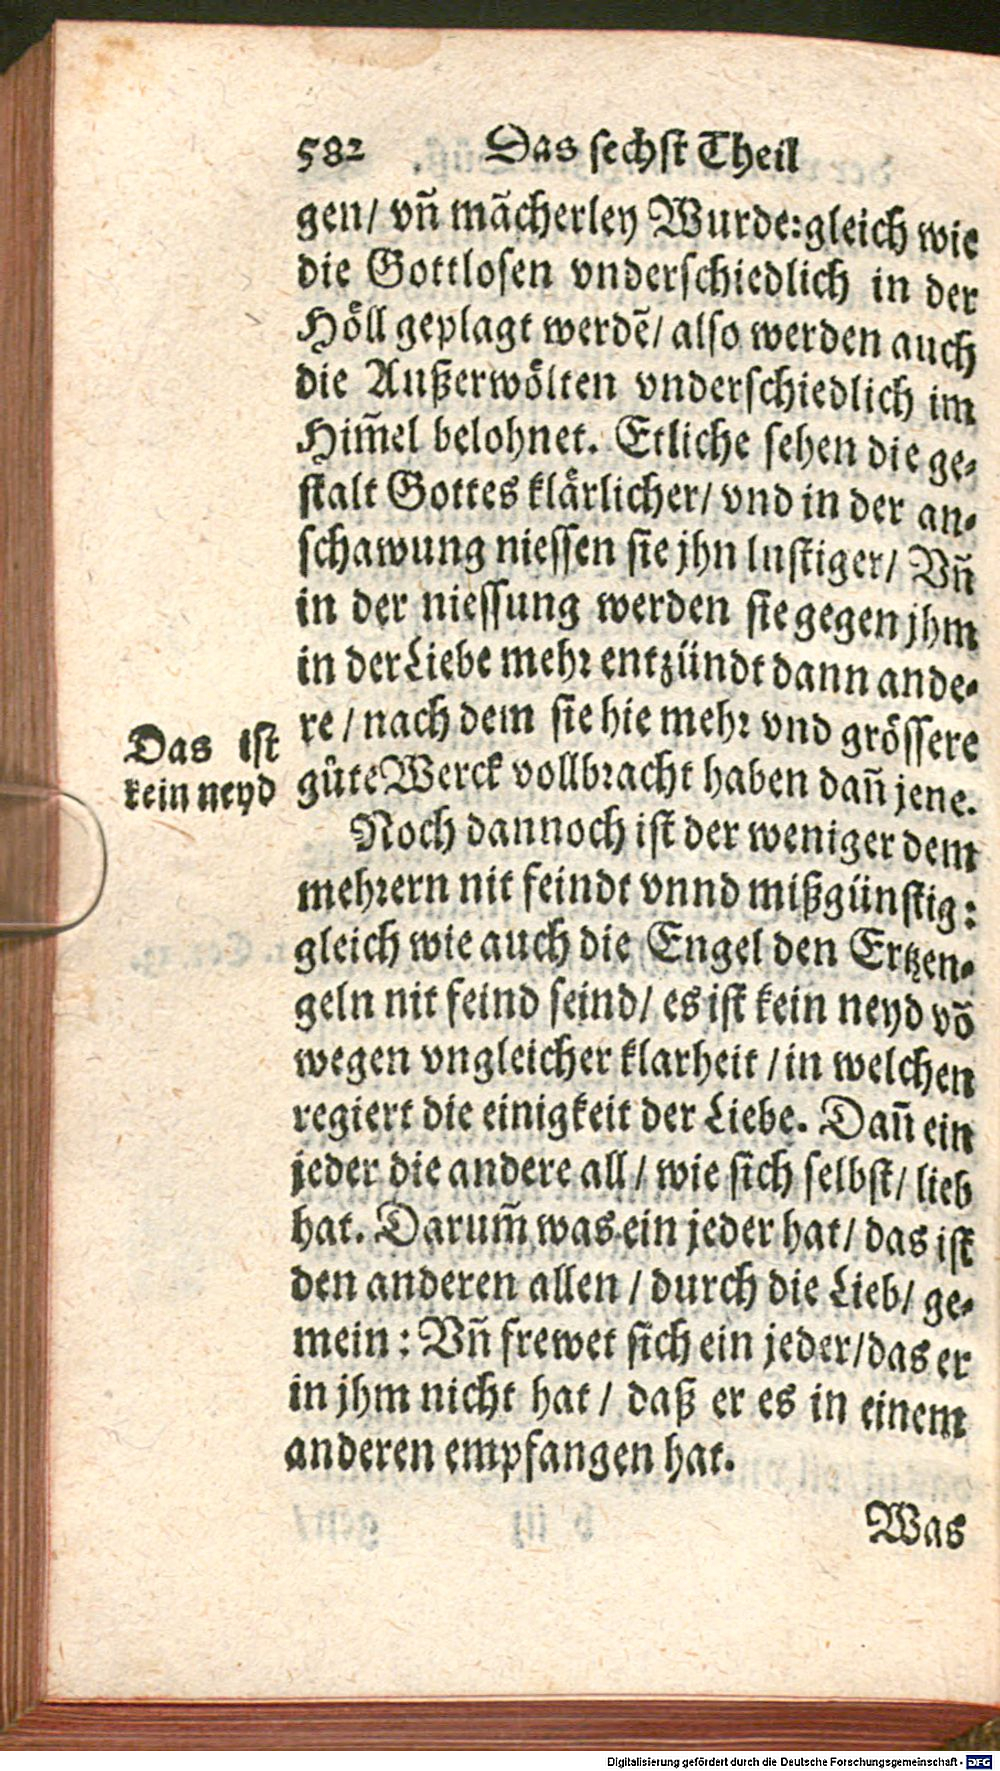 582 Das sechst Theil
gen/ vñ mãcherley Wurde: gleich wie
die Gottlosen vnderschiedlich in der
Höll geplagt werdẽ/ also werden auch
die Außerwölten vnderschiedlich im
Him̃el belohnet. Etliche sehen die ge-
stalt Gottes klärlicher/ vnd in der an-
schawung niessen sie jhn lustiger/ Vñ
in der niessung werden sie gegen jhm
in der Liebe mehr entzündt dann ande-
re / nach dem sie hie mehr vnd grössere
gůte Werck vollbracht haben dañ jene.
Das ist
kein neyd
Noch dannoch ist der weniger dem
mehrern nit feindt vnnd mißgünstig:
gleich wie auch die Engel den Ertzen-
geln nit feind seind/ es ist kein neyd võ
wegen vngleicher klarheit / in welchen
regiert die einigkeit der Liebe. Dañ ein
jeder die andere all / wie sich selbst/ lieb
hat. Darum̃ was ein jeder hat/ das ist
den anderen allen / durch die Lieb/ ge-
mein : Vñ frewet sich ein jeder/ das er
in jhm nicht hat / daß er es in einem
anderen empfangen hat.
Was
Digitalisierung gefördert durch die Deutsche Forschungsgemeinschaft - DFG